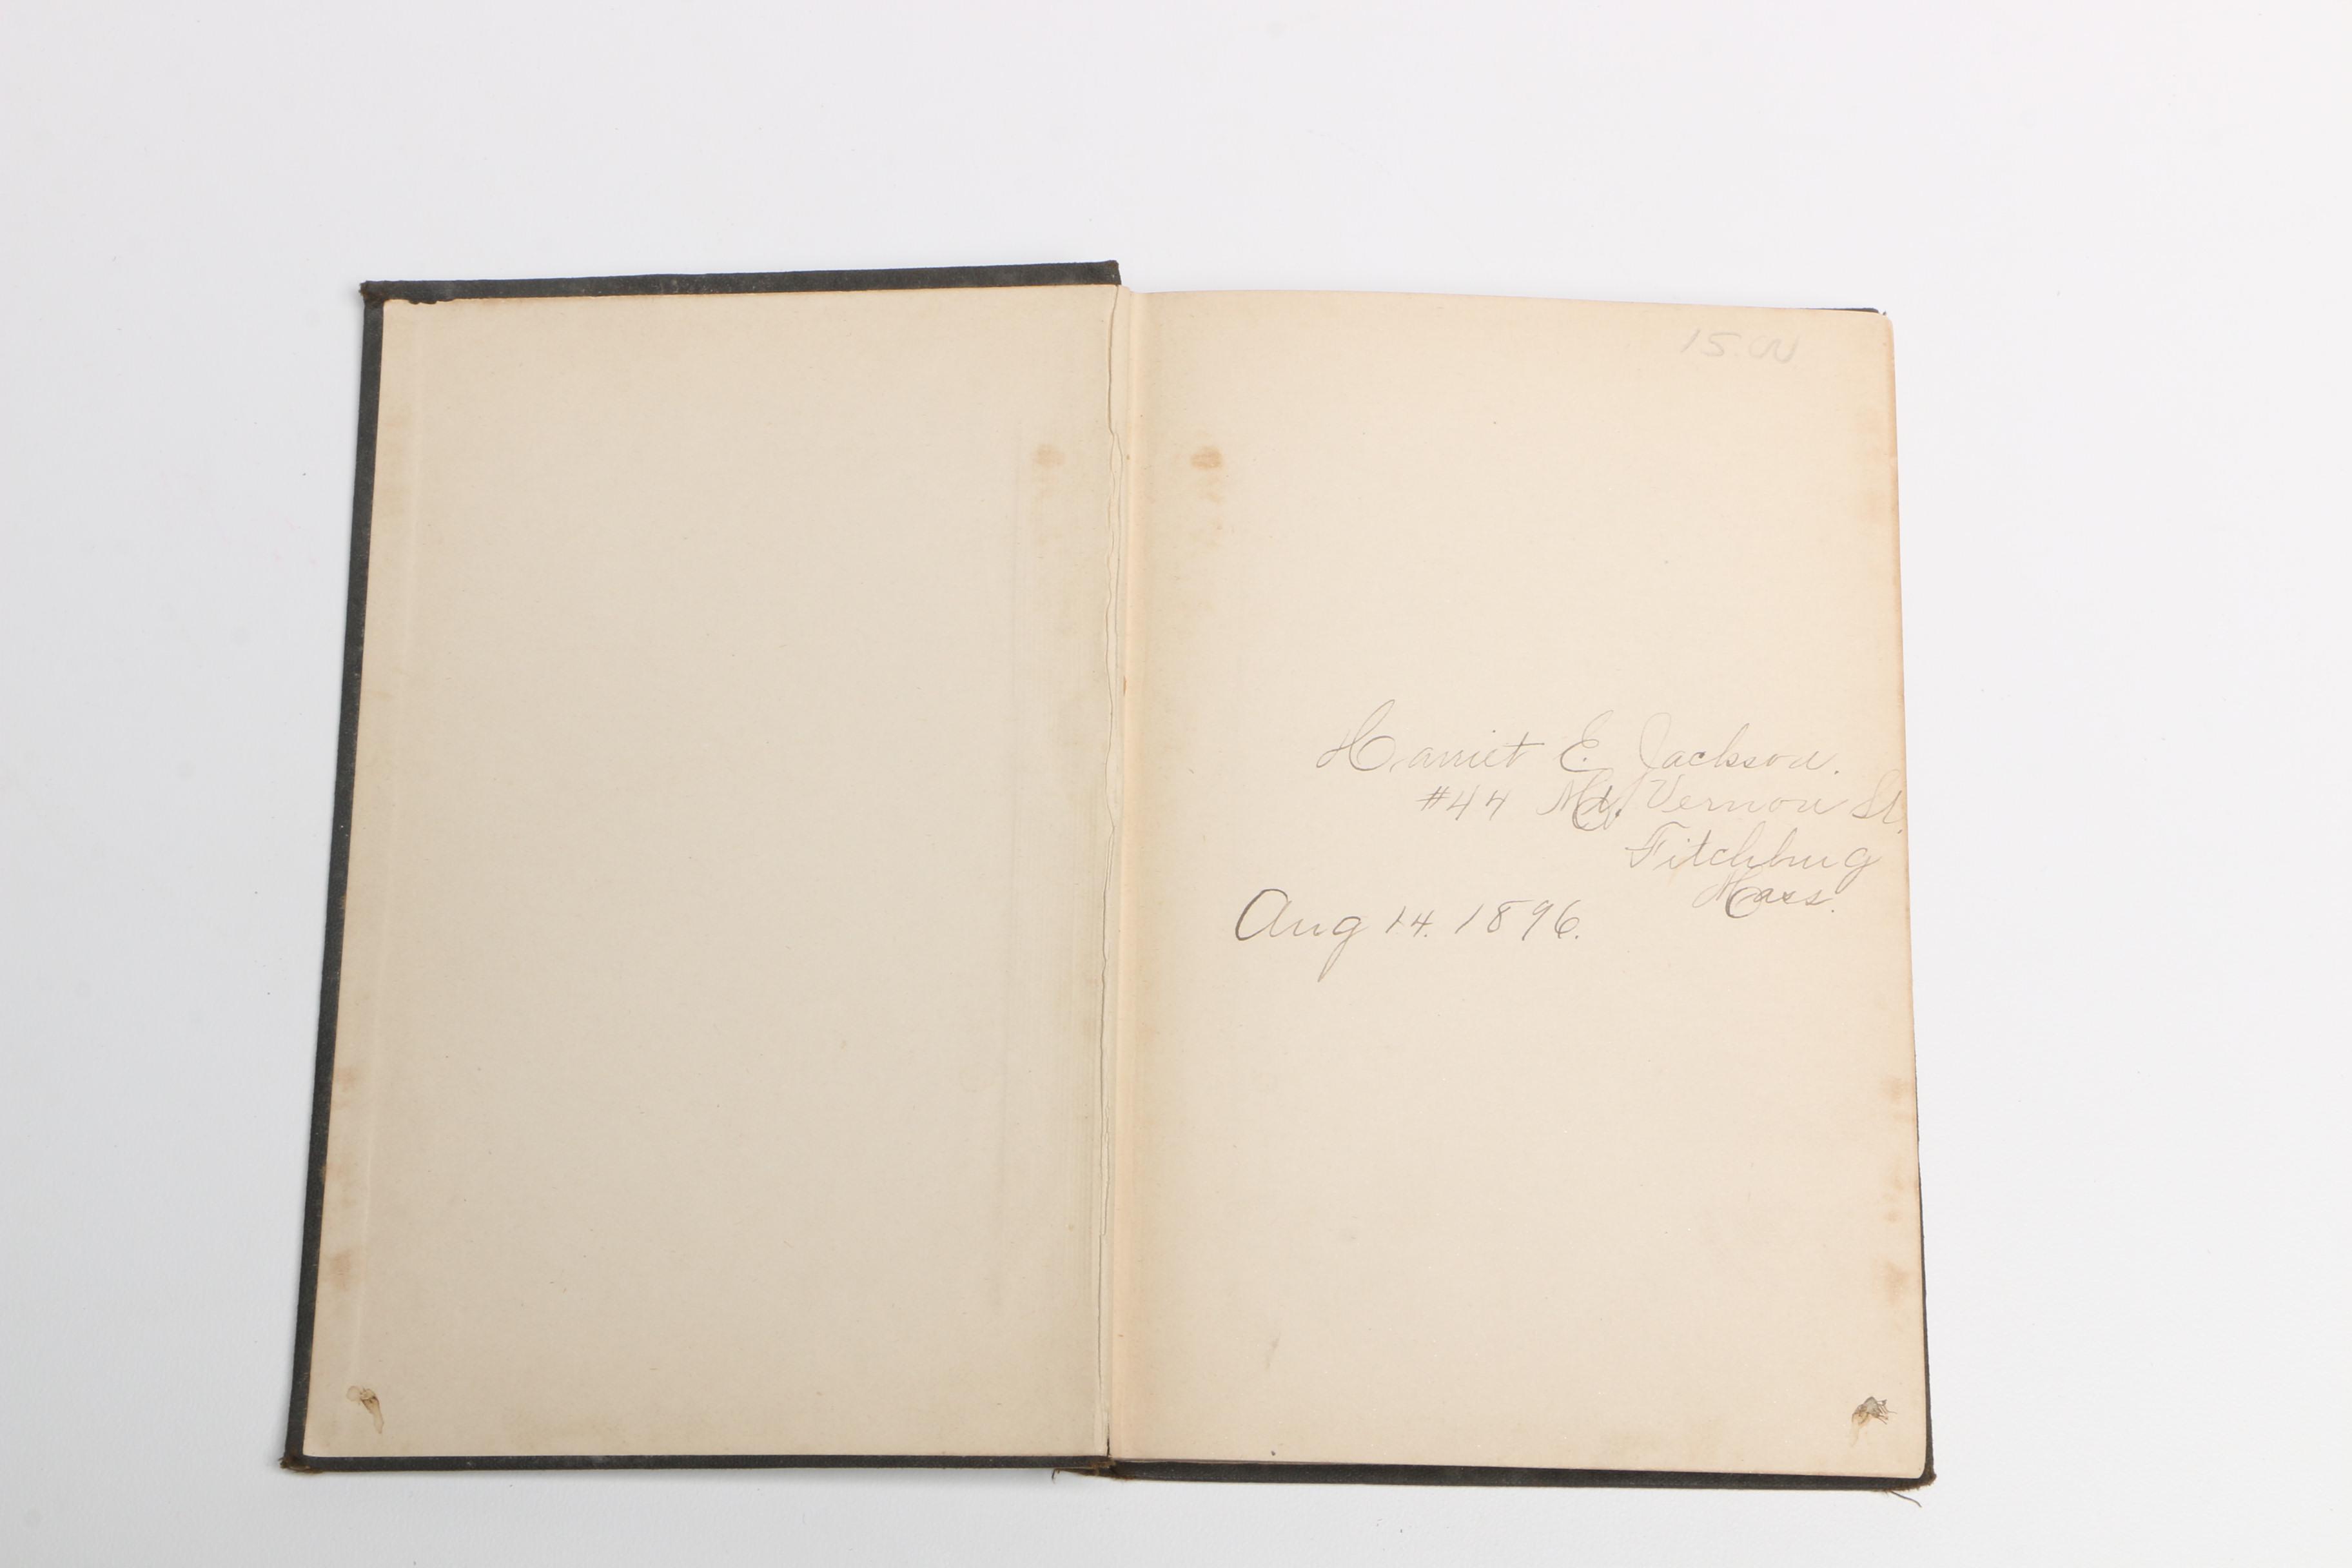 15.00
Harriet E. Jackson.
#44 Mt. Vernon St.
Fitchburg
Mass.
Aug 14. 1896.